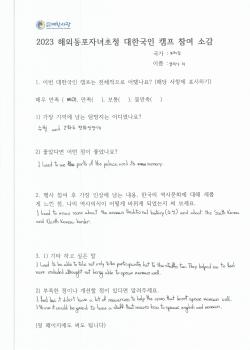 2023 해외동포자녀초청 대한국인 캠프 참여 소감
국가 :
이름 :
1. 이번 대한국인 캠프는 전체적으로 어땠나요? (해당 사항에 표시하기)
매우 만족( ), 만족( ), 보통( ), 불만족( )
1) 가장 기억에 남는 탐방지는 어디였나요?
수원 and
2) 좋았다면 어떤 점이 좋았나요?
I loved to see the parts of the palace and its
2. 행사 참여 후 가장 인상에 남는 내용, 한국의 역사문화에 대해 새롭
게 느낀 점, 나의 역사의식이 어떻게 바뀌게 되었는지 써 보세요.
I loved to know more about the traditional history and about the South Korea
and North Korea border.
3. 1) 기타 하고 싶은 말
I loved to be able to take not only to the participants but to the staffs too. They helped me to feel
more included although not being able to speak korean well.
2) 부족한 점이나 개선할 점이 있다면 알려주세요.
I feel like I didn't have a lot of resources to help the ones that don't speak korean well.
I think it would be good to have a staff that knows how to speak english and korean.
(뒷 페이지에도 써도 됩니다)